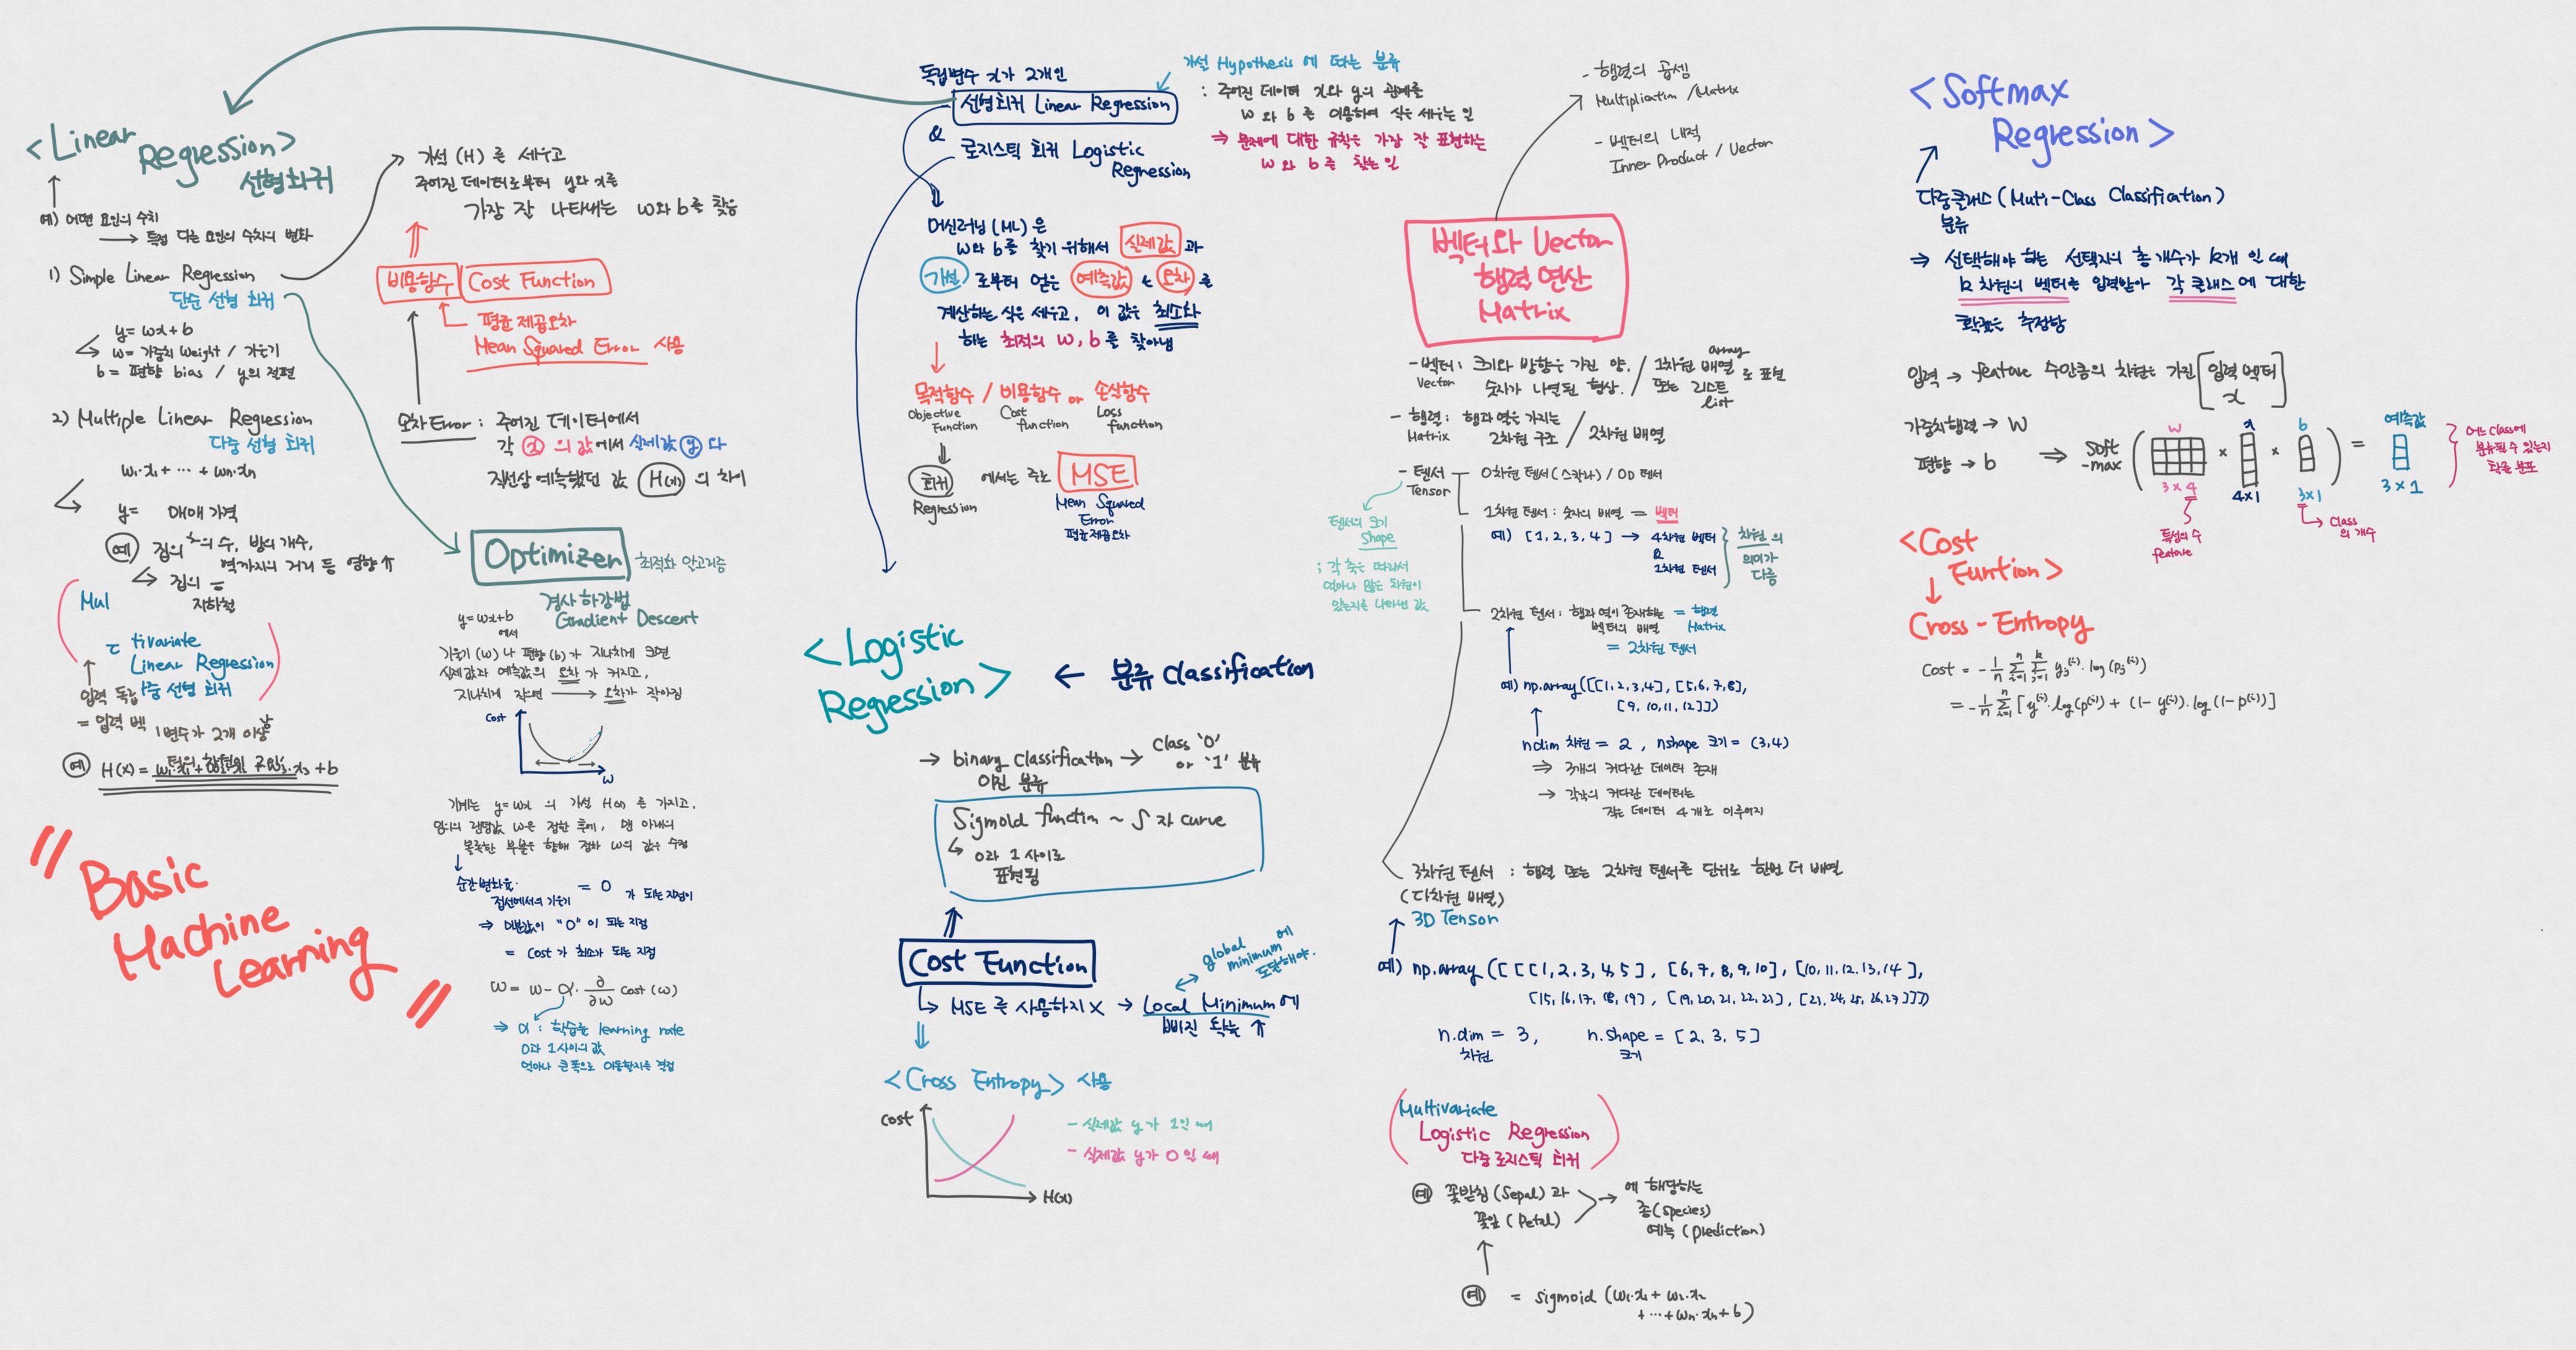 <Linear
Regression>
선형회귀
예) 어떤 요인의 수치
→ 특정 다른 요인의 수치의 변화
1) Simple Linear Regression
단순 선형 회귀
y = wx + b
w = 가중치 Weight / 기울기
b = 편향 bias / y의 절편
2) Multiple Linear Regression
다중 선형 회귀
w₁·x₁ + ··· + wn·xn
y = 매매 가격
예 집의 층의 수, 방의 개수,
역까지의 거리 등 영향 ↑
집의
지하철
Mul
tivariate
Linear Regression
다중 선형 회귀
입력 독립
= 입력 벡
변수가 2개 이상
예 H(x) = + b
"Basic
Machine
Learning"
가설 (H) 를 세우고
주어진 데이터로부터 y와 x를
가장 잘 나타내는 w와 b를 찾음
비용함수 Cost Function
평균 제곱오차
Mean Squared Error 사용
오차 Error : 주어진 데이터에서
각 x 의 값에서 실제값 y 와
직선상 예측했던 값 H(x) 의 차이
Optimizer 최적화 알고리즘
경사 하강법
Gradient Descent
y=wx+b
에서
기울기 (w) 나 편향 (b) 가 지나치게 크면
실제값과 예측값의 오차 가 커지고,
지나치게 작으면 → 오차가 작아짐
Cost
w
기계는 y=wx 의 가설 H(x) 를 가지고,
임의의 랜덤값 w을 정한 후에, 맨 아래의
볼록한 부분을 향해 점차 w의 값을 수정
순간변화율.
접선에서의 기울기 = 0 가 되는 지점이
⇒ 미분값이 "0" 이 되는 지점
= Cost 가 최소가 되는 지점
w = w - α · ∂/∂w cost (w)
⇒ α : 학습률 learning rate
0과 1사이의 값
얼마나 큰 폭으로 이동할지를 결정
독립변수 x가 2개인
선형회귀 Linear Regression
&
로지스틱 회귀 Logistic
Regression
가설 Hypothesis 에 따른 분류
: 주어진 데이터 x와 y의 관계를
w 와 b 를 이용하여 식을 세우는 일
⇒ 문제에 대한 규칙을 가장 잘 표현하는
w 와 b 를 찾는 일
머신러닝 (ML) 은
w와 b를 찾기 위해서 실제값 과
가설 로부터 얻은 예측값 의 오차 를
계산하는 식을 세우고, 이 값을 최소화
하는 최적의 w, b 를 찾아냄
목적함수 / 비용함수 or 손실함수
Objective Function Cost Function Loss Function
회귀 에서는 주로 MSE
Regression
Mean Squared
Error
평균제곱오차
<Logistic
Regression> ← 분류 Classification
→ binary Classification → Class '0'
or '1' 분류
이진 분류
Sigmoid function ~ S 자 curve
0과 1 사이로
표현됨
Cost Function
global
minimum에
도달해야.
MSE 를 사용하지 X → Local Minimum에
빠질 확률 ↑
<Cross Entropy> 사용
Cost
H(x)
- 실제값 y가 1일 때
- 실제값 y가 0일 때
- 행렬의 곱셈
Multiplication / Matrix
- 벡터의 내적
Inner Product / Vector
벡터와 Vector
행렬 연산
Matrix
- 벡터 : 크기와 방향을 가진 양. / 1차원 배열 array
Vector 숫자가 나열된 형상. / 또는 리스트 list 로 표현
- 행렬 : 행과 열을 가지는
Matrix 2차원 구조 / 2차원 배열
- 텐서 0차원 텐서 (스칼라) / 0D 텐서
Tensor
1차원 텐서 : 숫자의 배열 = 벡터
예) [1, 2, 3, 4] → 4차원 벡터
&
1차원 텐서
차원 의
의미가
다름
텐서의 크기
Shape
; 각 축을 따라서
얼마나 많은 차원이
있는지를 나타낸 값
2차원 텐서 : 행과 열이 존재하는 = 행렬
벡터의 배열 Matrix
= 2차원 텐서
예) np.array([[1,2,3,4], [5,6,7,8],
[9,10,11,12]])
ndim 차원 = 2 , nshape 크기 = (3,4)
⇒ 3개의 커다란 데이터 존재
→ 각각의 커다란 데이터는
작은 데이터 4개로 이루어짐
3차원 텐서 : 행렬 또는 2차원 텐서를 단위로 한번 더 배열
(다차원 배열)
3D Tensor
예) np.array ([[[1,2,3,4,5], [6,7,8,9,10], [10,11,12,13,14],
[15,16,17,18,19], [19,20,21,22,23], [23,24,25,26,27]]])
n.dim = 3, n.shape = [2, 3, 5]
차원 크기
(Multivariate
Logistic Regression
다중 로지스틱 회귀)
예 꽃받침 (Sepal) 과
꽃잎 (Petal)
→ 에 해당하는
종 (Species)
예측 (prediction)
예 = sigmoid (w₁·x₁ + w₂·x₂
+ ··· + wn·xn + b)
<Softmax
Regression>
다중클래스 (Muti-Class Classification)
분류
⇒ 선택해야 하는 선택지의 총 개수가 k개 인 때
k 차원의 벡터를 입력받아 각 클래스 에 대한
확률을 추정함
입력 → feature 수만큼의 차원을 가진 [입력 벡터
x]
가중치행렬 → W
편향 → b
⇒ Soft
-max ( w × x × b ) = 예측값
3×4 4×1 3×1 3×1
특성의 수
feature
class
의 개수
어느 class에
분류될 수 있는지
확률 분포
<Cost
Funtion>
Cross-Entropy
Cost = -1/n Σ(i=1, n) Σ(j=1, k) yj⁽ⁱ⁾ · log (pj⁽ⁱ⁾)
= -1/n Σ(i=1, n) [y⁽ⁱ⁾ · log(p⁽ⁱ⁾) + (1-y⁽ⁱ⁾) · log (1-p⁽ⁱ⁾)]